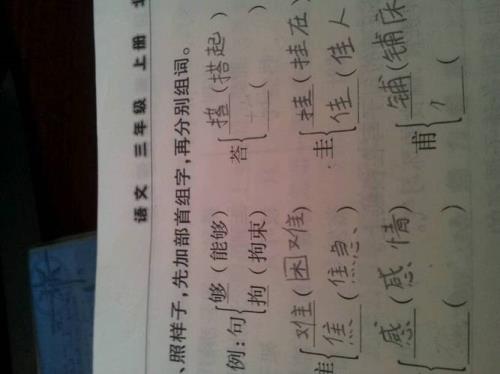 语文 三年级 上册
、照样子,先加部首组字,再分别组词。
例:句 够(能够) 荅 搭(搭起)
拘(拘束) (
隹 难(困难) 圭 挂(挂在)
焦(焦急、) 佳(佳人
感(感情) 甫 铺(铺床
( (